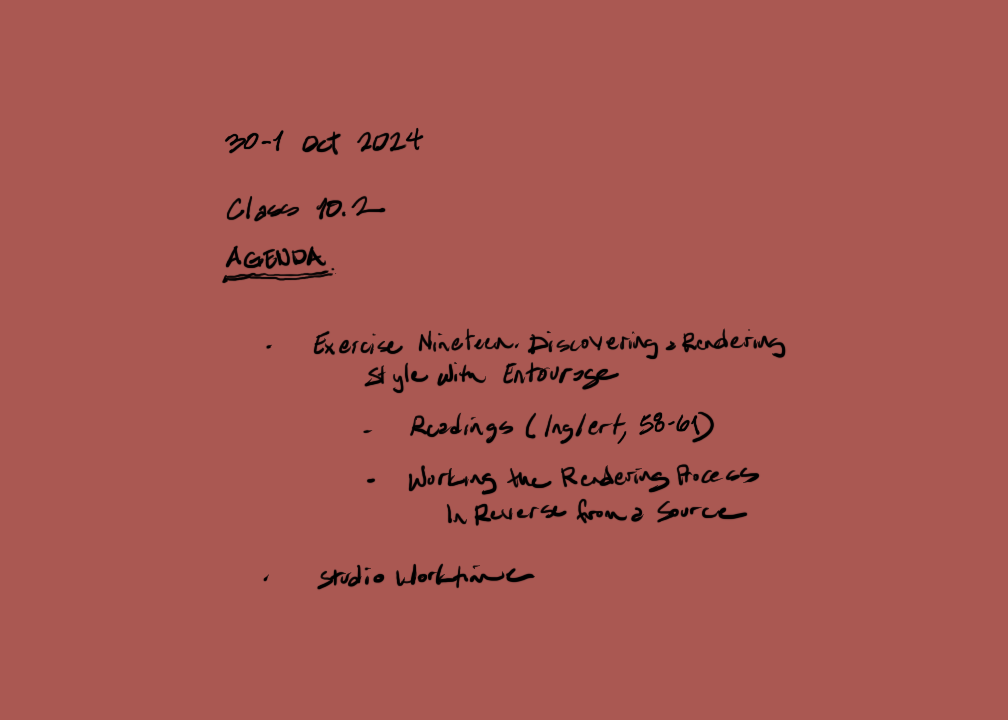 30-1 Oct 2024
Class 10.2
AGENDA
• Exercise Nineteen. Discovering a Rendering
Style with Entourage
- Readings (Inglert, 58-61)
- Working the Rendering Process
In Reverse from a Source
• Studio Worktime